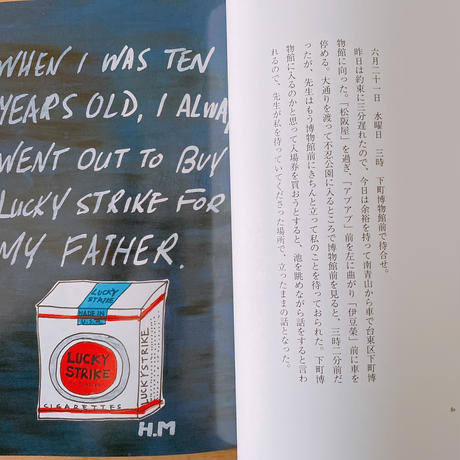 WHEN I WAS TEN
YEARS OLD, I ALWA
WENT OUT TO BUY
LUCKY STRIKE FOR
MY FATHER.
LUCKY
STRIKE
MADE IN
U.S.A.
LUCKY
STRIKE
CIGARETTES
LUCKY STRIKE
H.M
六月二十一日　水曜日　三時　下町博物館前で待合せ。
昨日は約束に三分遅れたので、今日は余裕を持って南青山から車で台東区下町博
物館に向った。「松阪屋」を過ぎ、「アブアブ」前を左に曲がり「伊豆榮」前に車を
停める。大通りを渡って不忍公園に入るところで博物館前を見ると、三時二分前だ
ったが、先生はもう博物館前にきちんと立って私のことを待っておられた。下町博
物館に入るのかと思って入場券を買おうとすると、池を眺めながら話をすると言わ
れるので、先生が私を待っていてくださった場所で、立ったままの話となった。